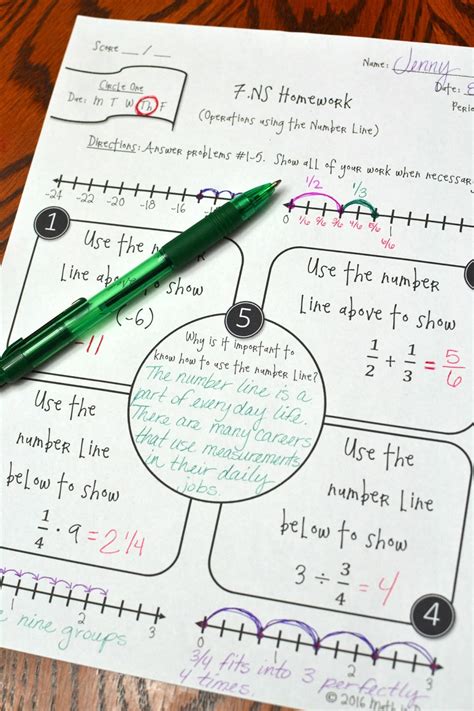 Score ___/___
Name: Jenny
Circle One
Due: M T W Th F
7.NS Homework
(Operations using the Number Line)
Directions: Answer problems #1-5. Show all of your work when necessar
-24 -22 -20 -18 -16
1/2 1/3
0 1/6 2/6 3/6 4/6 5/6 1
6/6
1
Use the
number
Line above to show
(-6)
-11
Use the
number
Line above to show
1/2 + 1/3 = 5/6
5
Why is it important to
know how to use the number line?
The number line is a
part of everyday life.
There are many careers
that use measurements
in their daily
jobs.
Use the
number Line
below to show
1/4 · 9 = 2 1/4
Use the
number Line
below to show
3 ÷ 3/4 = 4
4
1 2 3
nine groups
0 1 2 3
3/4 fits into 3 perfectly
4 times.
© 2016 Math